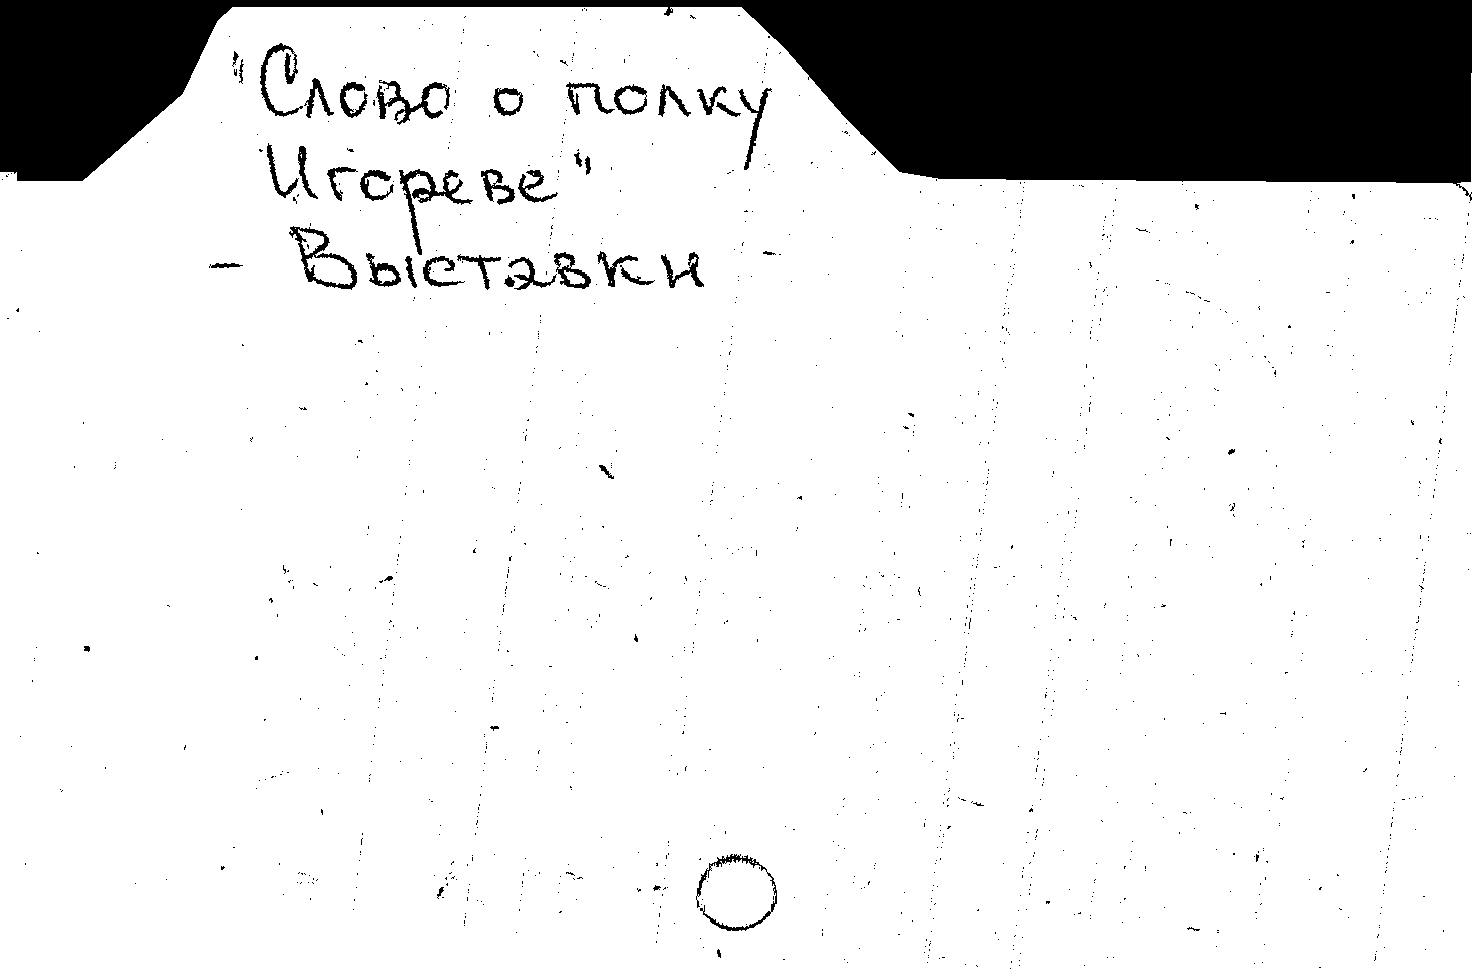 "Слово о полку
Игореве"
- Выставки -